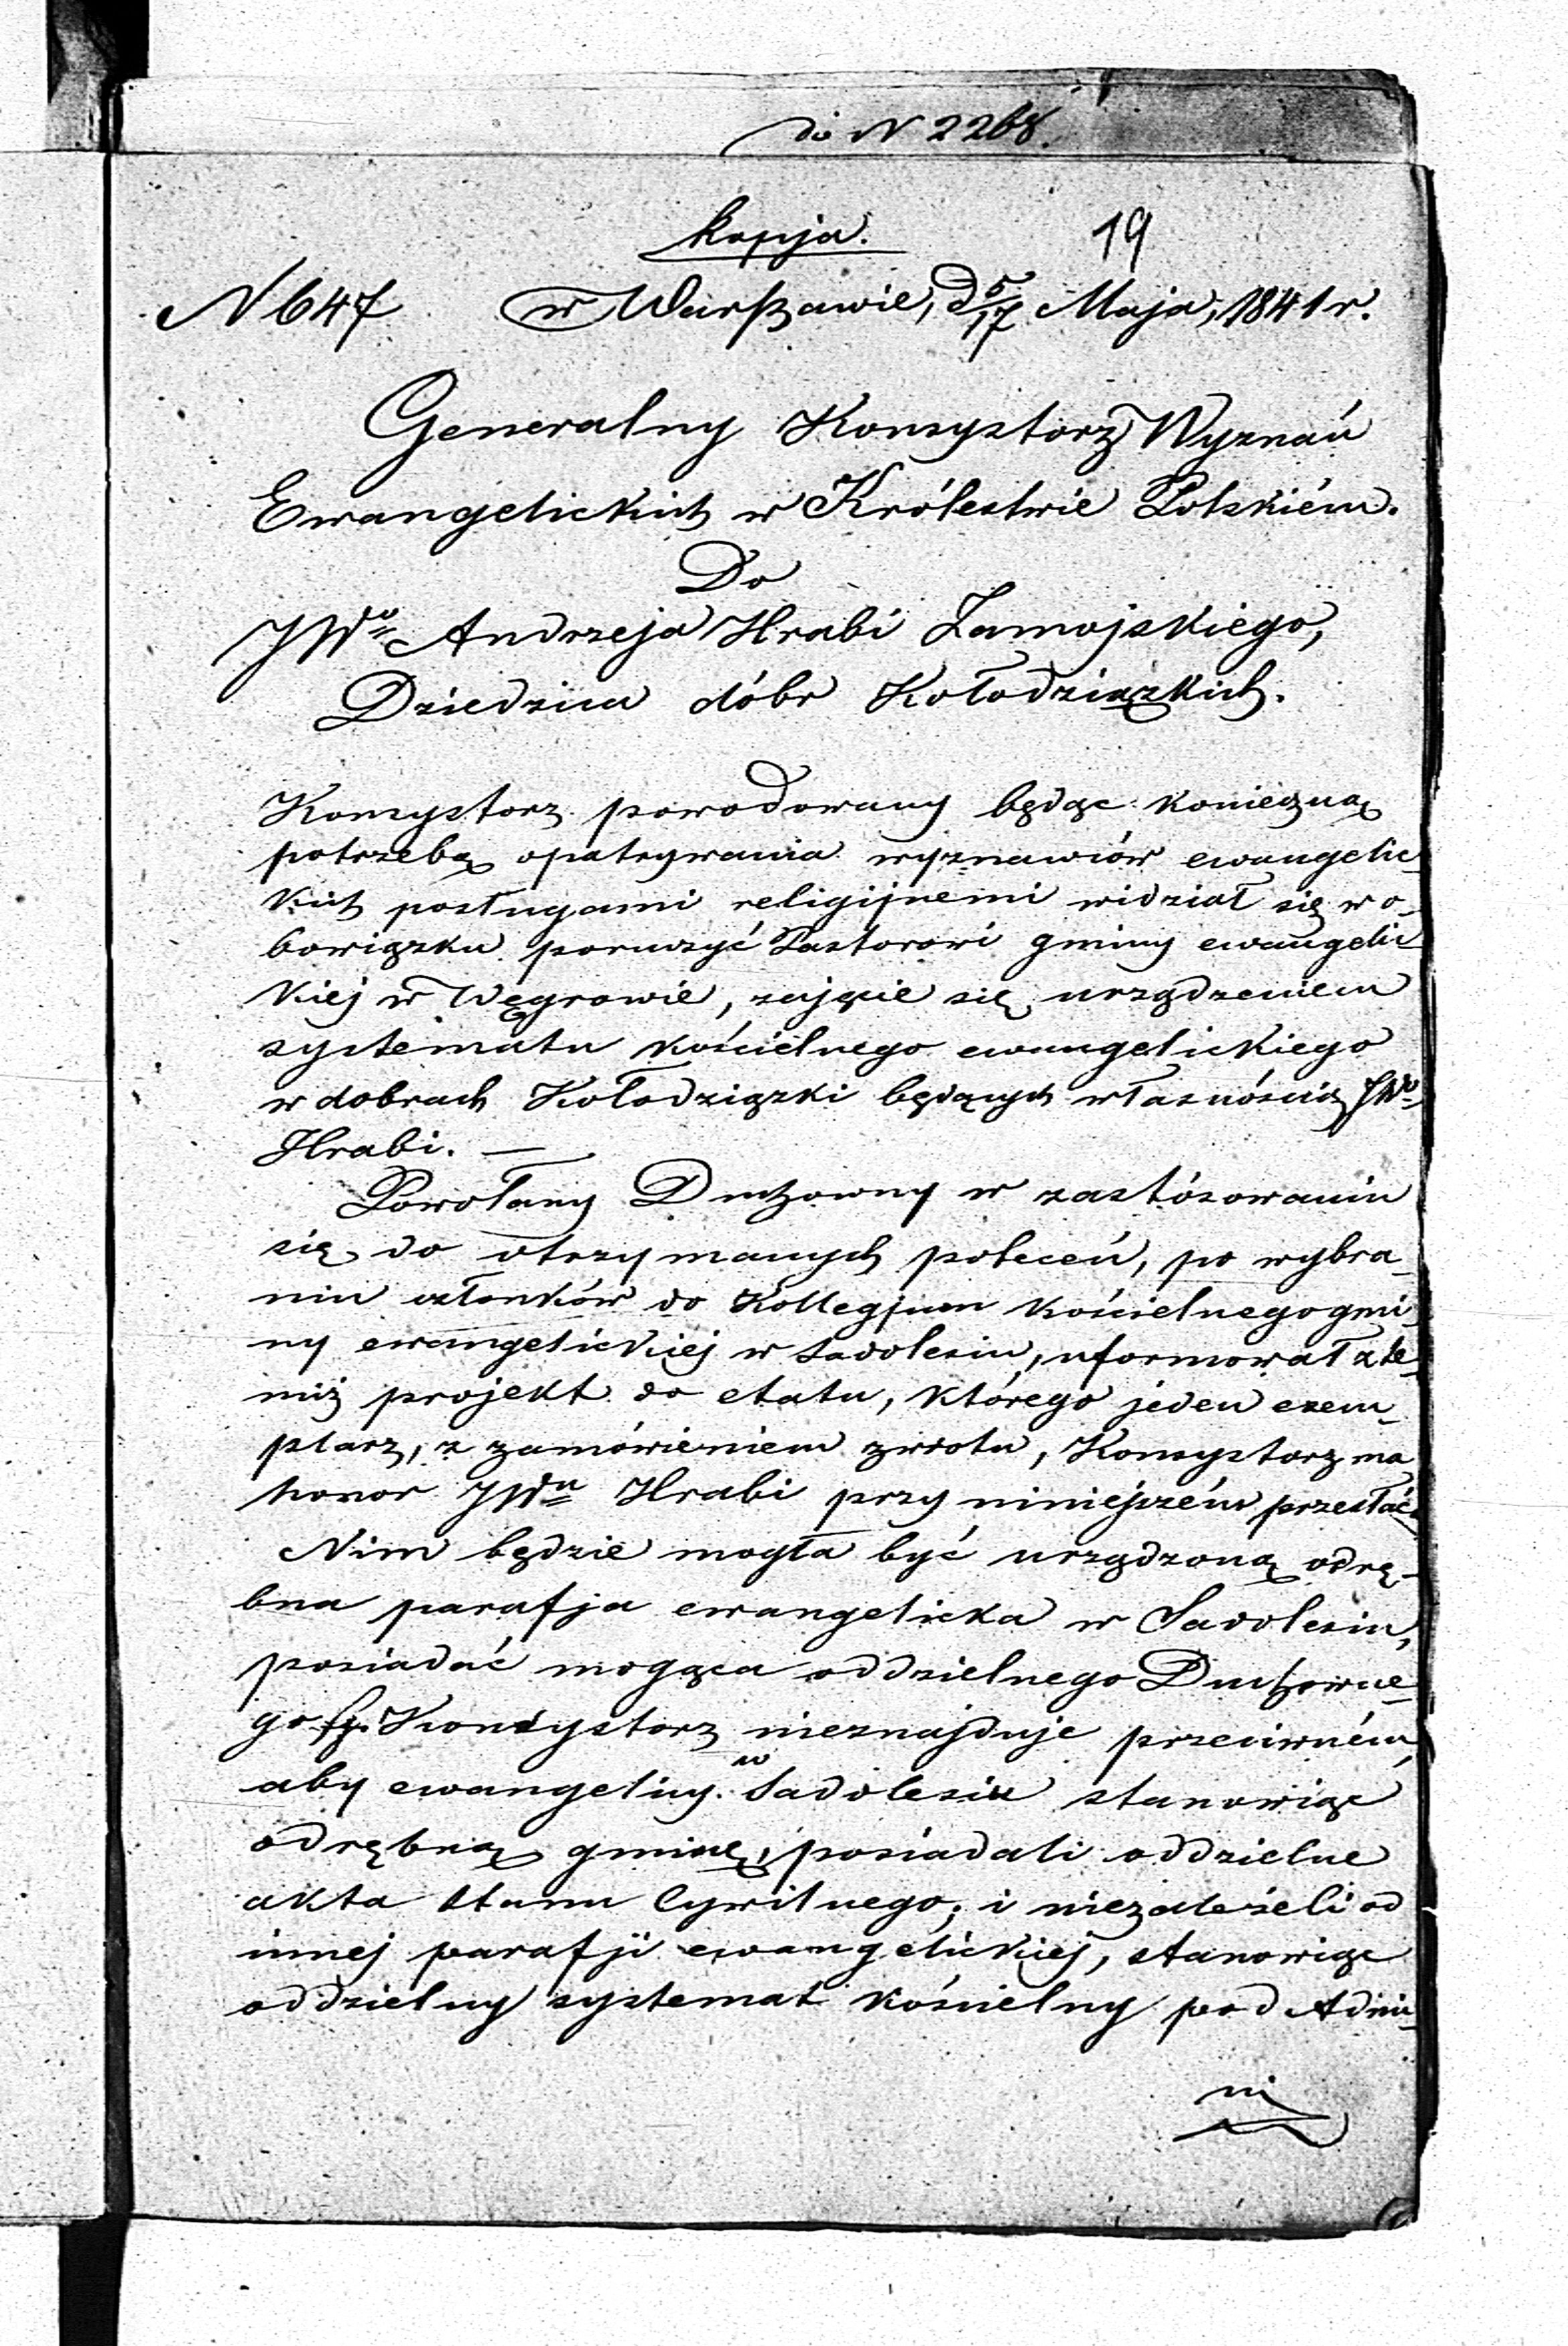 do N 2268.
Kopja. 19
N 647 w Warszawie, d 5/17 Maja, 1841 r.
Generalny Konsystorz Wyznań
Ewangelickich w Królestwie Polskiém.
Do
JWo Andrzeja Hrabi Zamojskiego,
Dziedzica dóbr Kołodziązkich.
Konsystorz powodowany będąc konieczną
potrzebą opatrywania wyznawców ewangelic-
kich posługami religijnemi widział się w o-
bowiązku poruczyć Pastorowi gminy ewangelic-
kiej w Węgrowie, zajęcie się urządzeniem
systematu kościelnego ewangelickiego
w dobrach Kołodziązki będących własnością JWo
Hrabi. —
Powołany Duchowny w zastósowaniu
się do otrzymanych poleceń, po wybra-
niu członków do Kollegjum kościelnego gmi-
ny ewangelickiej w Sadolesiu, uformował z te-
miż projekt do etatu, którego jeden exem-
plarz, z zamówieniem zwrotu, Konsystorz ma
honor JWu Hrabi przy niniejszém przesłać.
Nim będzie mogła być urządzoną odrę-
bna parafja ewangelicka w Sadolesiu,
posiadać mogąca oddzielnego Duchowne-
go Konsystorz nieznajduje przeciwném,
aby ewangelicy w Sadolesiu stanowiąc
odrębną gminę, posiadali oddzielne
akta Stanu Cywilnego, i niezależeli od
innej parafji ewangelickiej, stanowiąc
oddzielny systemat kościelny pod Admi-
ni